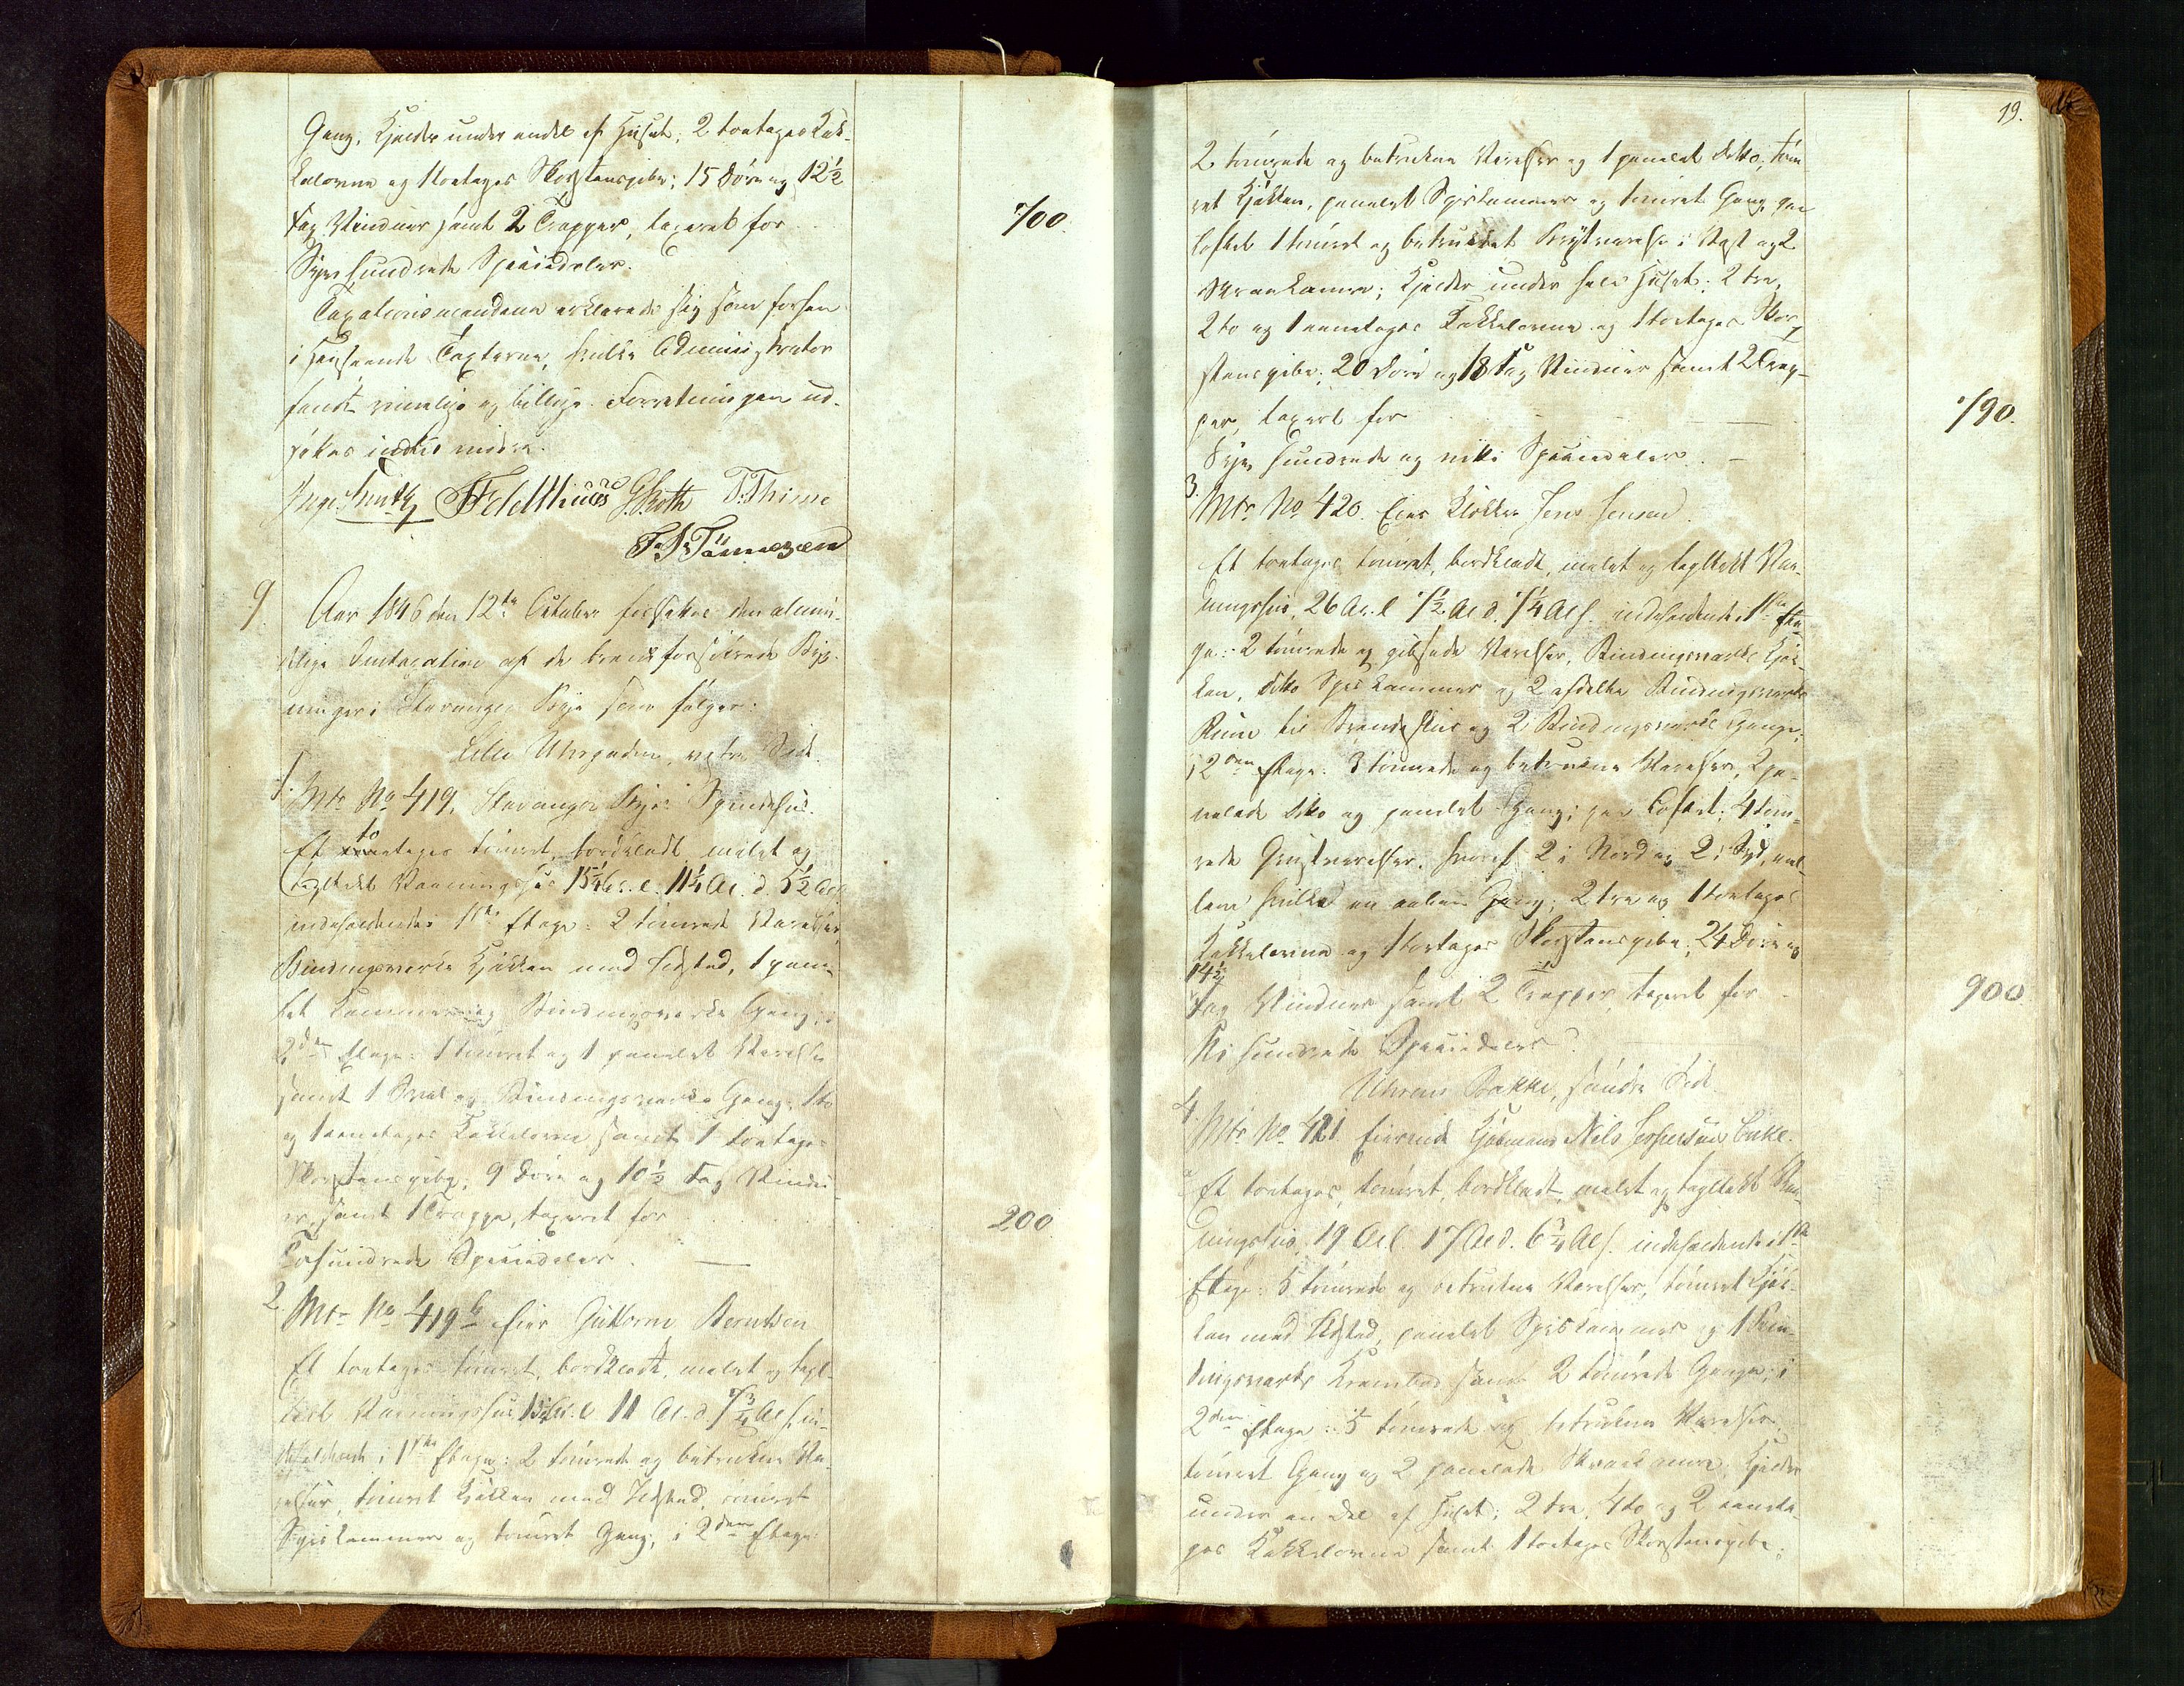 Gang, Kjelder under endel af Huset; 2 toetages Kak-
kelovne og 1 toetages Skorstenspibe; 15 Döre og 12½
Fag Vinduer samt 2 Trapper, taxeret for
700.
Syv hundrede Speciedaler.
Taxationsmændene erklærede sig som forhen
i Henseende Taxterne, hvilke Administrator
fandt rimelige og billige. Forretningen ud-
viste intet videre.
Feldthuus G. Roth T. Thime
T. S. Tönnesen
9. Aar 1846 den 12te October foretoges den almin-
delige Omtaxation af de brandforsikrede Byg-
ninger i Stavanger Bye som fölger:
Lille Uhrgaden, vestre Side.
1. Mtr No 419, Stavanger Byes Spindehus.
Et toetages tömret, bordklædt, malet og
tegltekt Vaaningshus 15¼ Al. l. 11¼ Al. d. 5½ Al. h.
indeholdende i 1ste Etage: 2 tömrede Værelser,
Bindingsverks Kjökken med Ildsted, 1 pane-
let Kammer og Bindingsverks Gang; i
2den Etage: 1 tömret og 1 panelet Værelse
samt 1 Sval og Bindingsverks Gang, 1 to
og 1 eenetages Kakkelovne samt 1 toetages
Skorstenspibe; 9 Döre og 10½ Fag Vindu-
er, samt 1 Trappe, taxeret for
200
Tohundrede Speciedaler.
2. Mtr No 419b Eier Guttorm Berntsen
Et toetages tömret, bordklædt, malet og tegl-
tekt Vaaningshus 15 Al. l 11 Al. d 7¾ Al h in-
deholdende i 1ste Etage: 2 tömrede og betrukne Væ-
relser, tömret Kjökken med Ildsted, tömret
Spiskammer og tömret Gang; i 2den Etage:
19.
2 tömrede og betrukne Værelser og 1 panelet ditto, töm-
ret Kjökken, panelet Spiskammer og tömret Gang, paa
Loftet 1 tömret og betrukket Qvistværelse i Vest og 2
Skraakamre; Kjelder under hele Huset; 2 tre,
2 to og 1 eenetages Kakkelovne og 1 toetages Skor-
stenspibe; 20 Döre og 18 Fag Vinduer samt 2 Trap-
per, taxeret for
790.
Syv hundrede og nitti Speciedaler.
3. Mtr No 420. Eier Klokker Jens Jensen.
Et toetages tömret, bordklædt, malet og tegltekt Vaa-
ningshus, 26 Al. l 7½ Al d. 7¼ Al h. indeholdende i 1ste Eta-
ge: 2 tömrede og gibsede Værelser, Bindingsverks Kjök-
ken, ditto Spiskammer og 2 afdelte Bindingsverks
Rum til Brændehus og 2 Bindingsverks Gange;
i 2den Etage: 3 tömrede og betrukne Værelser, 2 pa-
nelede ditto og panelet Gang; paa Loftet: 4 töm-
rede Qvistværelser, hvoraf 2 i Nord og 2 i Syd, mel-
lem hvilke en aaben Gang; 2 tre og 1 toetages
Kakkelovne og 1 toetages Skorstenspibe; 24 Döre og
14½
Fag Vinduer samt 2 Trapper, taxeret for
900
Ni hundrede Speciedaler.
Uhrens Bakke, söndre Side.
4. Mtr No 421 Eierinde Kjöbmand Nils Jespersens Enke.
a Et toetages, tömret, bordklædt, malet og tegltekt Vaa-
ningshus, 19 Al l 17 Al d. 6¼ Al h. indeholdende i 1ste
Etage: 5 tömrede og betrukne Værelser, tömret Kjök-
ken med Ildsted, panelet Spiskammer og 1 Bin-
dingsverks Krambod samt 2 tömrede Gange; i
2den Etage: 5 tömrede og betrukne Værelser,
tömret Gang og 2 panelede Skraakamre, Kjelder
under en Del af Huset; 2 tre, 4 to og 2 eeneta-
ges Kakkelovne samt 1 toetages Skorstenspibe;